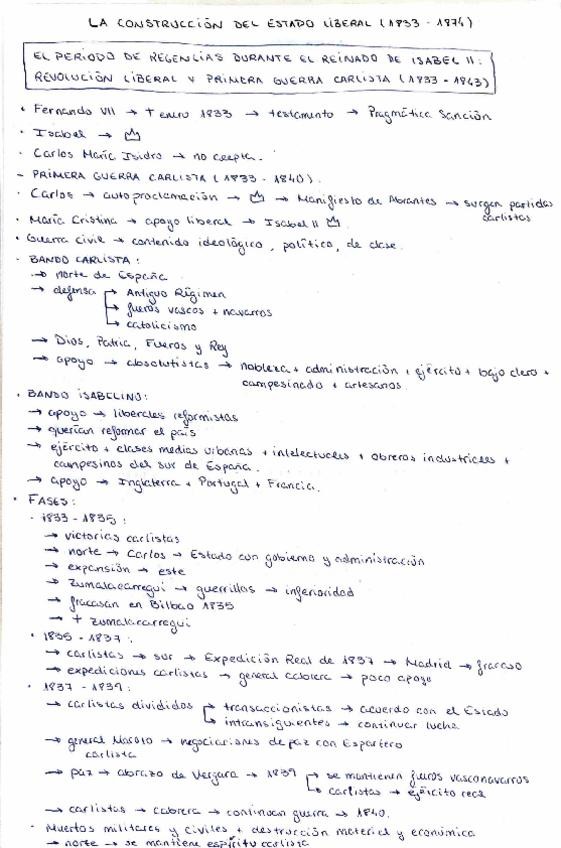 LA CONSTRUCCIÓN DEL ESTADO LIBERAL (1833 - 1874)
EL PERIODO DE REGENCIAS DURANTE EL REINADO DE ISABEL II:
REVOLUCIÓN LIBERAL Y PRIMERA GUERRA CARLISTA (1833 - 1843)
· Fernando VII → † enero 1833 → testamento → Pragmática Sanción
· Isabel →
· Carlos María Isidro → no acepta.
- PRIMERA GUERRA CARLISTA (1833 - 1840).
· Carlos → autoproclamación → → Manifiesto de Abrantes → surgen partidas
carlistas
· María Cristina → apoyo liberal → Isabel II
· Guerra civil → contenido ideológico, político, de clase.
· BANDO CARLISTA:
→ norte de España
→ defensa → Antiguo Régimen
→ fueros vascos + navarros
→ catolicismo
→ Dios, Patria, Fueros y Rey
→ apoyo → absolutistas → nobleza + administración + ejército + bajo clero +
campesinado + artesanos
· BANDO ISABELINO:
→ apoyo → liberales reformistas
→ querían reformar el país
→ ejército + clases medias urbanas + intelectuales + obreros industriales +
campesinos del sur de España.
→ apoyo → Inglaterra + Portugal + Francia.
· FASES:
· 1833 - 1835:
→ victorias carlistas
→ norte → Carlos → Estado con gobierno y administración
→ expansión → este
→ Zumalacarregui → guerrillas → inferioridad
→ fracasan en Bilbao 1835
→ † Zumalacarregui
· 1835 - 1837:
→ carlistas → sur → Expedición Real de 1837 → Madrid → fracaso
→ expediciones carlistas → general Cabrera → poco apoyo
· 1837 - 1839:
→ carlistas divididos → transaccionistas → acuerdo con el Estado
→ intransigentes → continuar lucha
→ general Maroto → negociaciones de paz con Espartero
carlista
→ paz → abrazo de Vergara → 1839 → se mantienen fueros vasconavarros
→ carlistas → ejército real
→ carlistas → Cabrera → continuan guerra → 1840.
· Muertos militares y civiles + destrucción material y económica
→ norte → se mantiene espíritu carlista